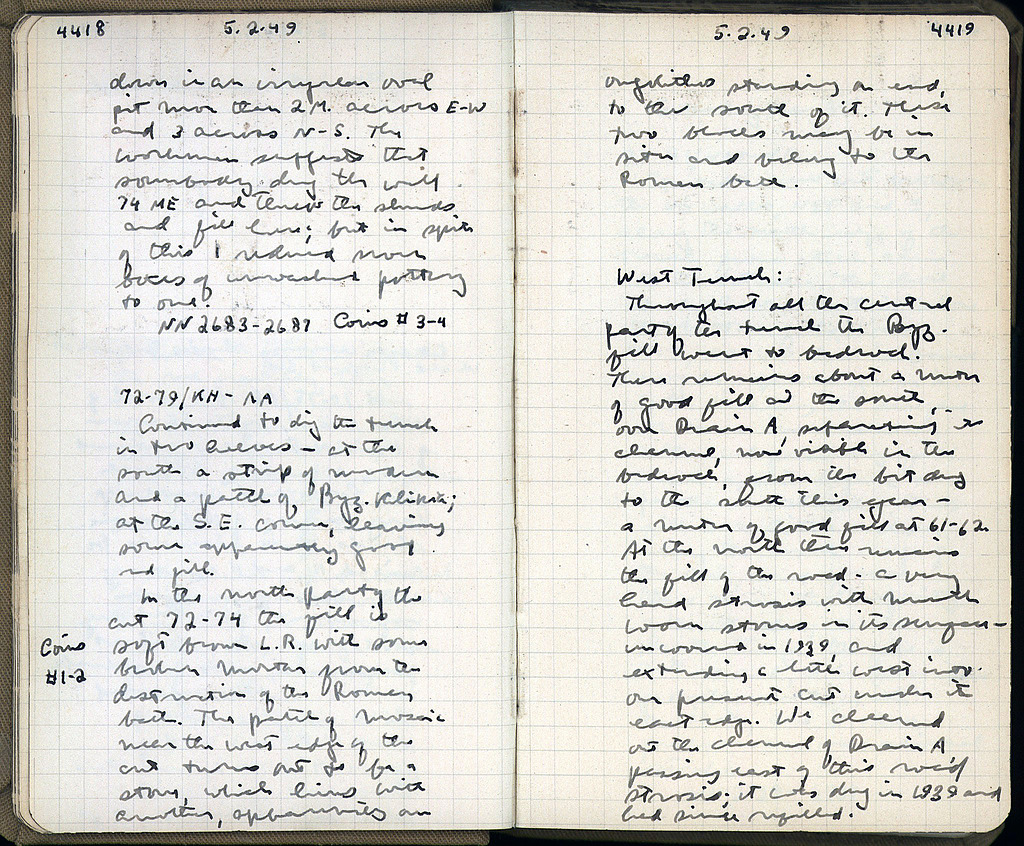 4418
5.2.49
down in an irregular oval
pit more than 2 M. across E-W
and 3 across N-S. The
workmen suggests that
somebody dug the well
74 ME and threw the sherds
and fill here; but in spite
of this I reduced seven
boxes of unwashed pottery
to one.
NN 2683-2687 Coins #3-4
72-79/KH-ΛA
Continued to dig the trench
in two halves - at the
south a strip of modern
and a patch of Byz.
at the S.E. corner, leaving
some apparently good
red fill.
In the north part of the
cut 72-74 the fill is
Coins
#1-2
soft brown L.R. with some
broken mortar from the
destruction of the Roman
bath. The patch of mosaic
near the west edge of the
cut turns out to be a
stone, which lines with
another, apparently an
5.2.49
4419
orthostates standing on end,
to the south of it. These
two blocks may be in
situ and belong to the
Roman bath.
West Trench:
Throughout all the central
part of the trench the Byz.
fill went to bedrock.
There remains about a meter
of good fill at the south,
over Drain A, separating its
channel, now visible in the
bedrock, from the bit dug
to the south this year -
a meter of good fill at 61-62.
At the north there remains
the fill of the road - a very
hard strosis with much
worn stones in its surface -
uncovered in 1939, and
extending a little west into
our present cut under its
east edge. We cleared
out the channel of Drain A,
passing east of this road
strosis; it was dug in 1939 and
had since refilled.